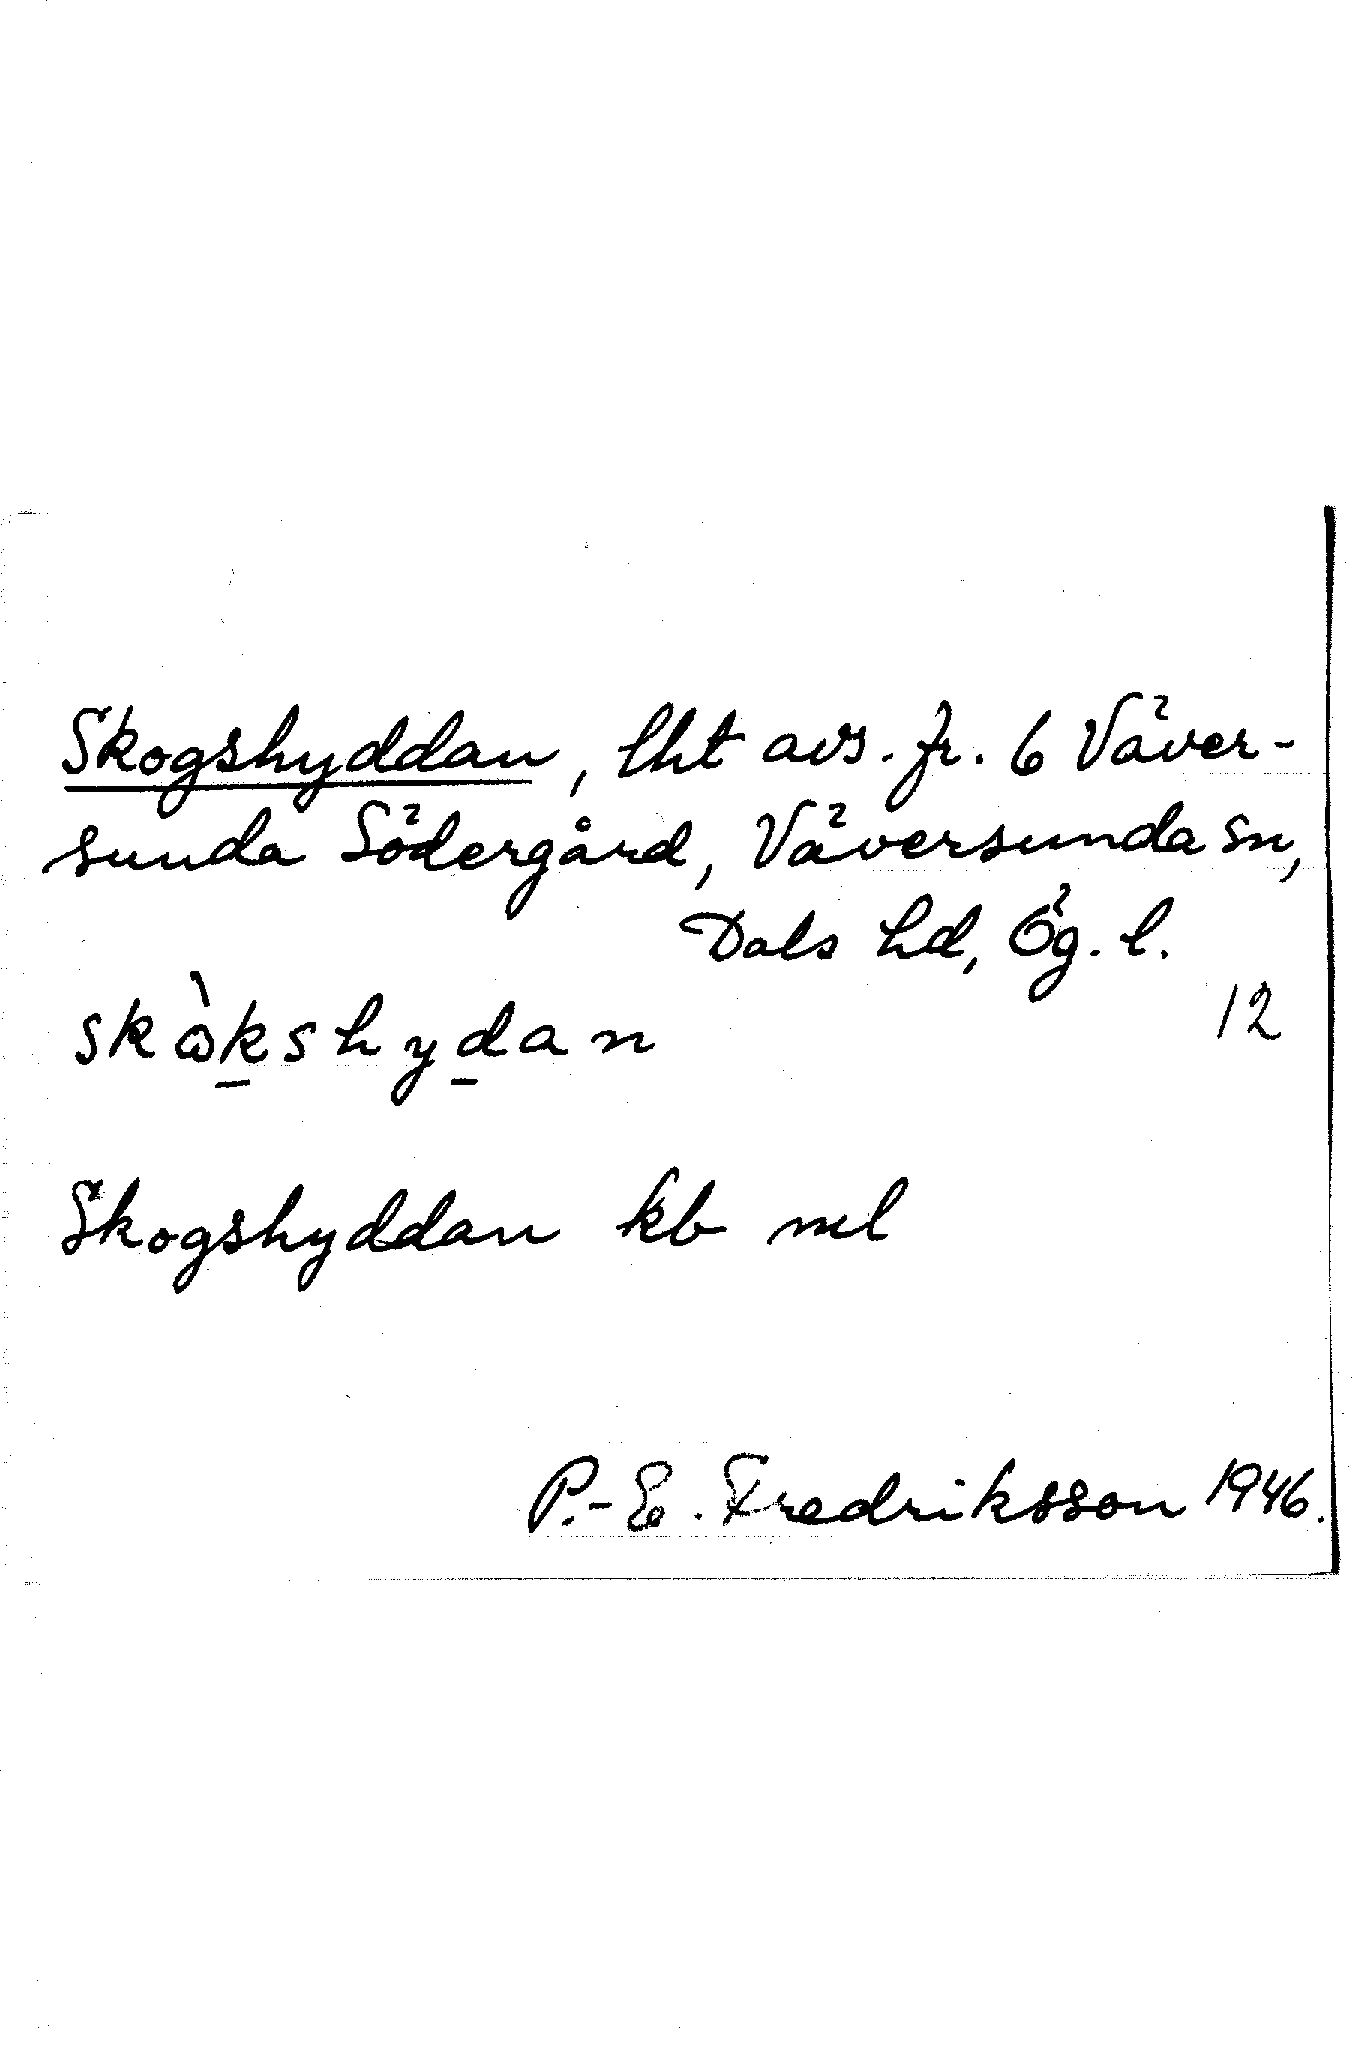 Skogshyddan, lht avs. fr. 6 Väver-
sunda Södergård, Väversunda sn,
Dals hd, Ög. l.
12
skὼk̲shyd̲an
Skogshyddan kb ml
P.-E. Fredriksson 1946.